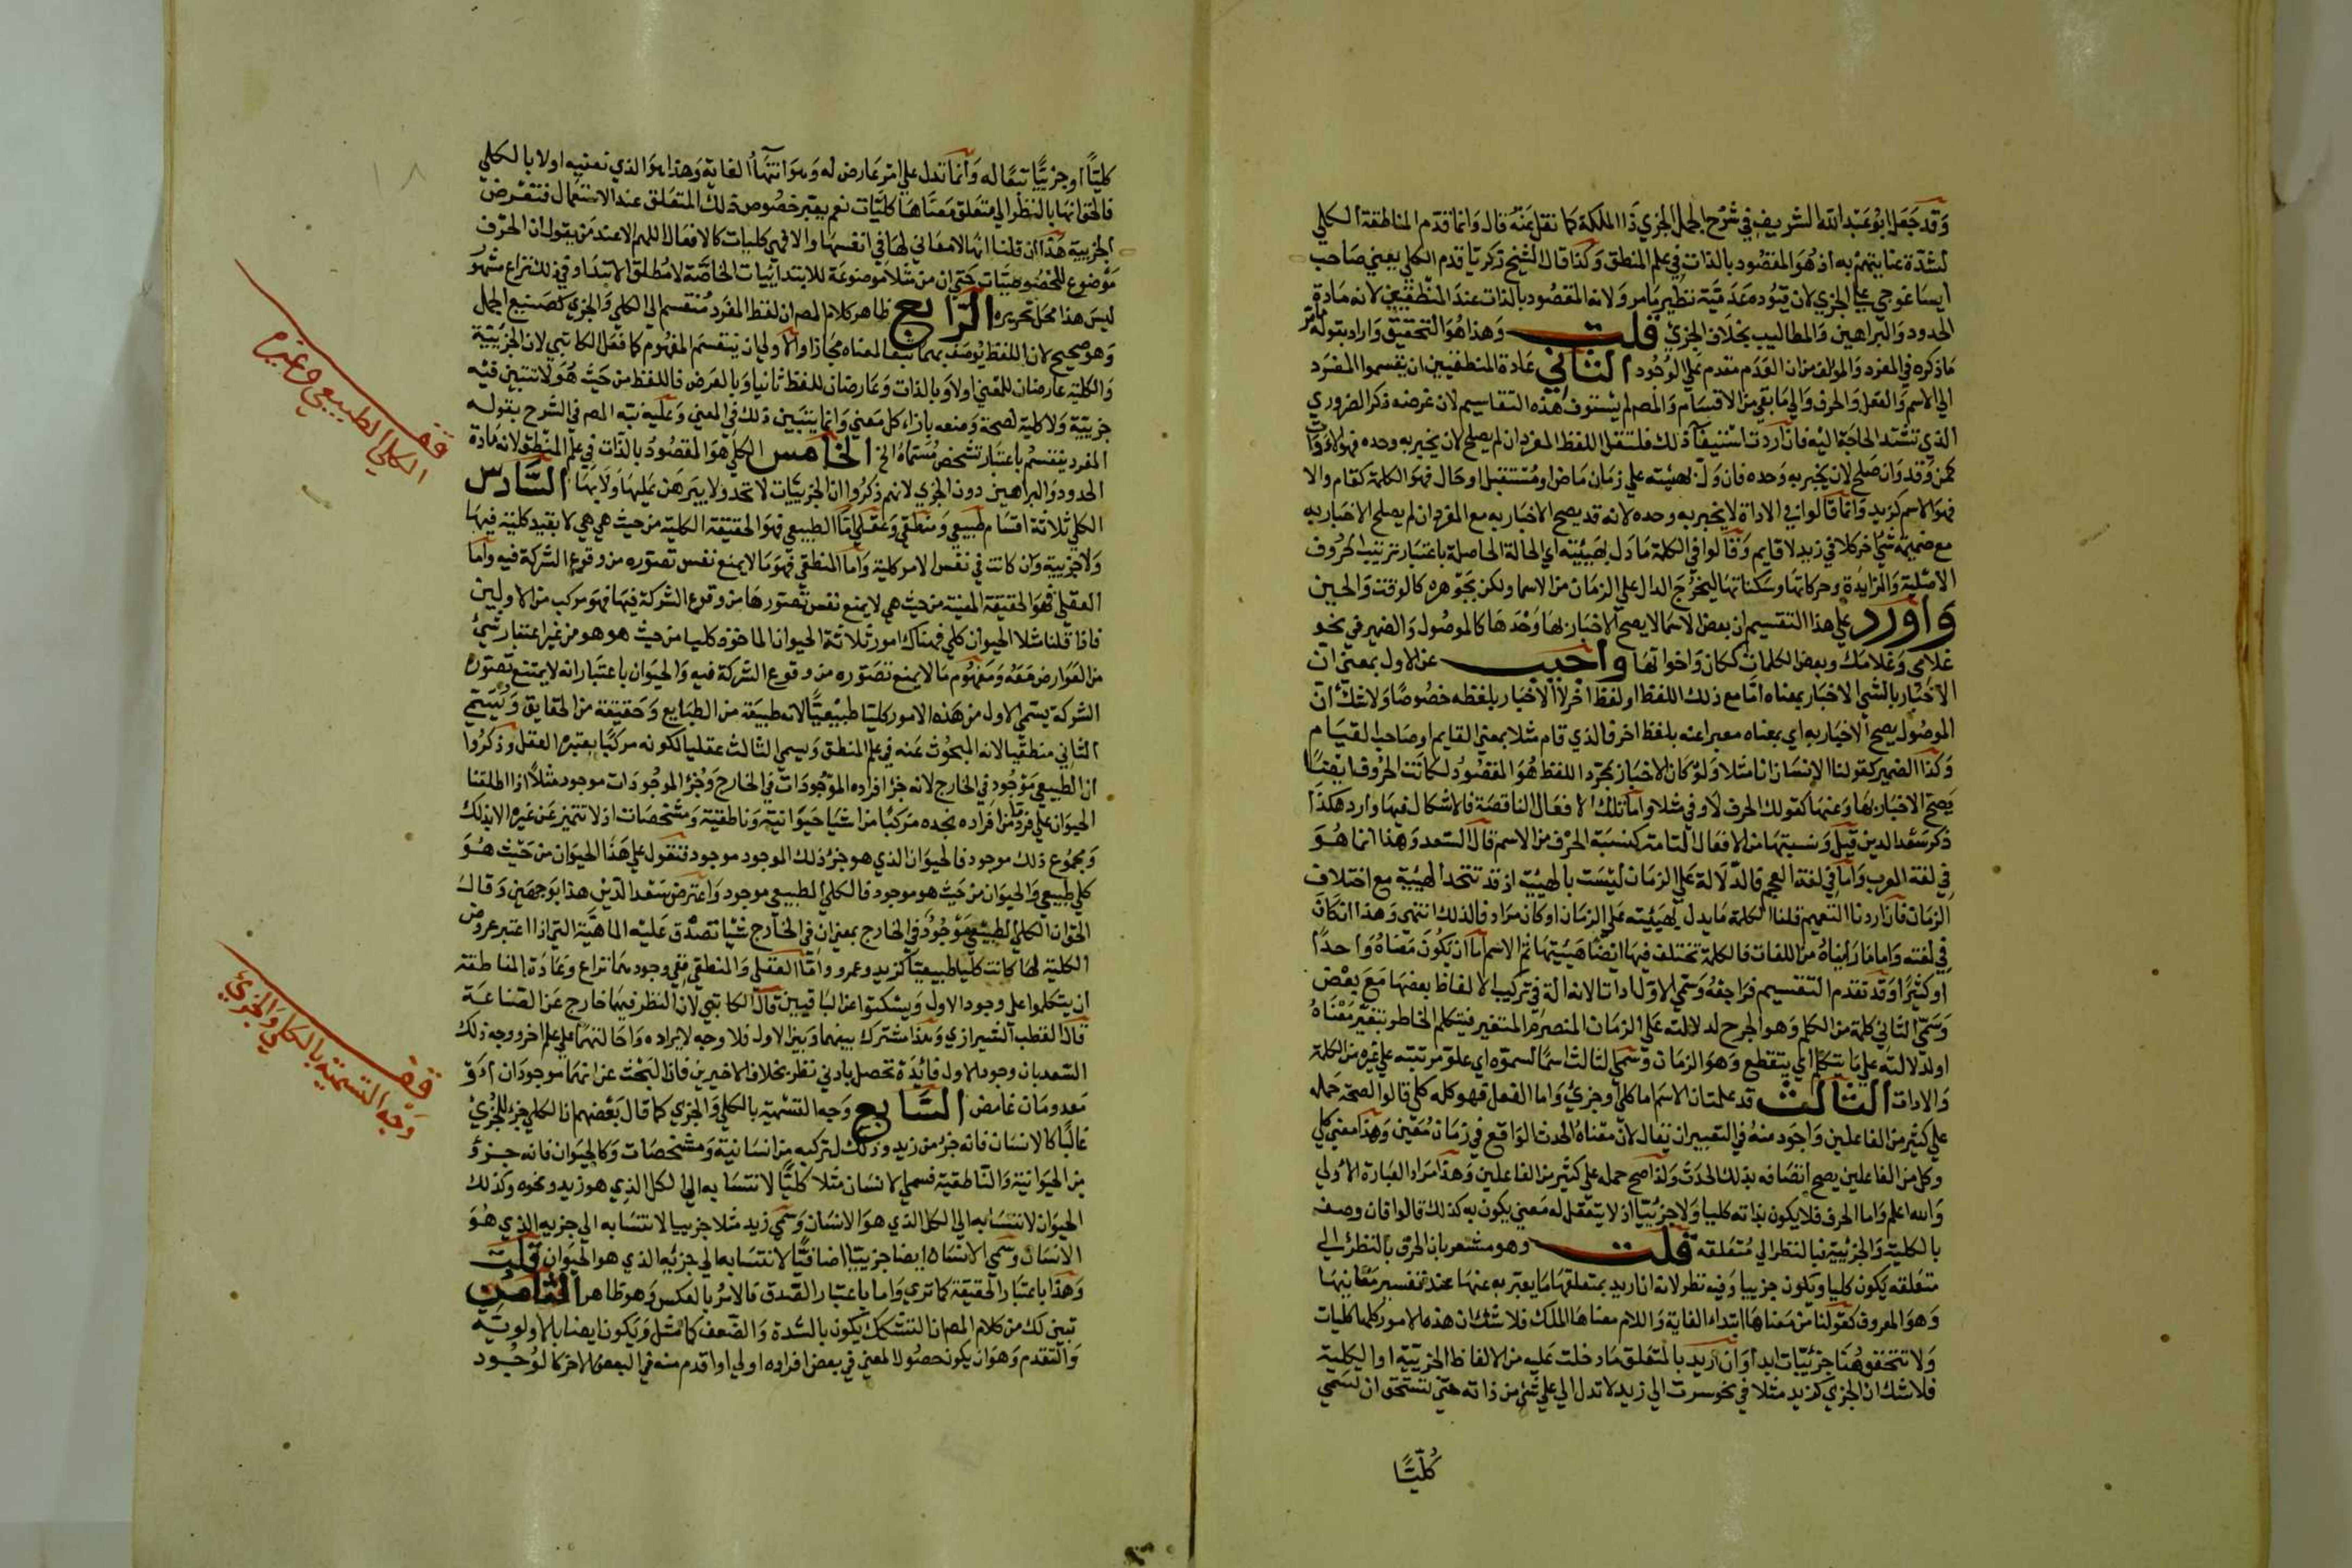 وقد جعل ابو عبد الله الشريف في شرح الجمل الجزي ذا الملكة كما نقل عنه قال وانما قدم المناطقة الكلي
لشدة عنايتهم به اذ هو المقصود بالذات في علم المنطق وكذا قال الشيخ زكريا قدم الكلي يعني صاحب
ايساغوجي على الجزي لان قيوده عدمية نظير ما مر ولانه المقصود بالذات عند المنطقيين لانه مادة
الحدود والبراهين والمطاليب بخلاف الجزي قلت وهذا هو التحقيق واراد بقوله ما مر
ما ذكره في المفرد والمولف من ان العدم مقدم على الوجود الثاني عادة المنطقيين ان يقسموا المفرد
الى الاسم والفعل والحرف والى ما بقي من الاقسام والمص لم يستوف هذه التقاسيم لان غرضه ذكر الضروري
الذي تشتد الحاجة اليه فان اردت استيفا ذلك فلتقل اللفظ المفرد ان لم يصلح لان يخبر به وحده فهو الادوات
كمن وقد وان صلح لان يخبر به وحده فان دل بهيئته على زمان ماض او مستقبل او حال فهو الكلمة كقام والا
فهو الاسم كزيد وانما قالوا في الاداة لا يخبر به وحده لانه قد يصح الاخبار به مع المفرد ان لم يصلح الاخبار به
مع ضميمة شي اخر كلا في زيد لا قايم وقالوا في الكلمة ما دل بهيئته اي الحالة الحاصلة باعتبار ترتيب الحروف
الاصلية والزايدة وحركاتها وسكناتها ليخرج الدال على الزمان من الاسما ولكن بجوهره كالوقت والحين
واورد على هذا التقسيم ان بعض الاسما لا يصح الاخبار بها وحدها كالموصول والضمير في نحو
غلامي وغلامك وبعض الكلمات ككان واخواتها واجيب عن الاول بمعنى ان
الاخبار بالشي الاخبار بمعناه اما مع ذلك اللفظ او لفظ اخر لا الاخبار بلفظه خصوصا ولا شك ان
الموصول يصح الاخبار به اي بمعناه معبرا عنه بلفظ اخر فالذي قام مثلا بمعنى القايم او صاحب القيام
وكذا الضمير كقولنا الانسان انا مثلا ولو كان الاخبار بمجرد اللفظ هو المقصود لكانت الحروف ايضا
يصح الاخبار بها وعنها كقولك الحرف لا وفي مثلا واما تلك الافعال الناقصة فالاشكال فيها وارد هكذا
ذكر سعد الدين قيل ونسبتها من الافعال التامة كنسبة الحرف من الاسم قال السعد وهذا انما هو
في لغة العرب واما في لغة العجم فالدلالة على الزمان ليست بالهيئة اذ قد تتحد الهيئة مع اختلاف
الزمان فان اردنا التعميم قلنا الكلمة ما يدل بهيئته على الزمان او كان مرادفا لذلك انتهى وهذا ان كان
في لغته واما ما رايناه من اللغات فالكلمة تختلف فيها ايضا هيئيتها ثم الاسم اما ان يكون معناه واحدا
او كثيرا وقد تقدم التقسيم فراجعه وسمي الاول اداتا لانه الة في تركيب الالفاظ بعضها مع بعض
وسمي الثاني كلمة من الكلم وهو الجرح لدلالته على الزمان المنصرم المتغير فيتكلم الخاطر بتغير معناه
او لدلالته على ما يتكلم اي يتقطع وهو الزمان وسمي الثالث اسما لسموه اي علو مرتبته على غيره من الكلمة
والادات الثالث قد علمت ان الاسم اما كلي او جزي واما الفعل فهو كله كلي قالوا لصحة حمله
على كثير من الفاعلين واجود منه في التعبير ان يقال لان معناه الحدث الواقع في زمان معين وهذا معنى كلي
وكل من الفاعلين يصح اتصافه بذلك الحدث ولذا صح حمله على كثير من الفاعلين وهذا مراد العبارة الاولى
والله اعلم واما الحرف فلا يكون بذاته كليا ولا جزئيا اذ لا يتعقل له معنى يكون به كذلك قالوا فان وصف
بالكلية والجزئية فبالنظر الى متعلقه قلت وهو مشعر بان الحرف بالنظر الى
متعلقه يكون كليا ويكون جزييا وفيه نظر لانه ان اريد بمتعلقها ما يعبر به عنها عند تفسير معانيها
وهو المعروف كقولنا من معناها ابتداء الغاية واللام معناها الملك فلا شك ان هذه الامور كلها كليات
ولا تتحقق هنا جزئيات ابدا وان اريد بالمتعلق ما دخلت عليه من الالفاظ الجزيية او الكلية
فلا شك ان الجزي كزيد مثلا في نحو سرت الى زيد لا تدل الى على شي من ذاته حتى تستحق ان تسمى
كليا
كليا او جزييا تبعا له وانما تدل على امر عارض له وهو انتهاء الغاية وهذا هو الذي نعنيه اولا بالكلي
فالحق انها بالنظر الى متعلق معناها كليات نعم يعتبر خصوص ذلك المتعلق عند الاستعمال فتعرض
الجزيية هذا ان قلنا انها لا معاني لها في انفسها والا فهي كليات كالافعال اللهم الا عند من يقول ان الحرف
موضوع للخصوصيات حتى ان من مثلا موضوعة للابتدائيات الخاصة لا مطلق الابتدا وفي ذلك نزاع مشهور
ليس هذا محل تحريره الرابع ظاهر كلام المص ان لفظ المفرد منقسم الى الكلي والجزي كصنيع الجمل
وهو صحيح لان اللفظ يوصف بهما تبعا لمعناه مجازا والاولى ان ينقسم المفهوم كما فعل الكاتبي لان الجزئية
والكلية عارضان للمعنى اولا وبالذات وعارضان للفظ ثانيا وبالعرض فاللفظ من حيث هو لا تتبين فيه
جزيية ولا كلية لصحة وضعه بازاء كل معنى وانما يتبين ذلك في المعنى وعليه نبه المص في الشرح بقوله
المفرد ينقسم باعتبار تشخص مسماه الخ الخامس الكلي هو المقصود بالذات في علم المنطق لانه مادة
الحدود والبراهين دون الجزي لانهم ذكروا ان الجزييات لا تحد ولا يبرهن عليها ولا بها السادس
الكلي ثلاثة اقسام طبيعي ومنطقي وعقلي اما الطبيعي فهو الحقيقة الكلية من حيث هي هي لا بقيد كلية فيها
ولا جزيية وان كانت في نفس الامر كلية واما المنطقي فهو ما لا يمنع نفس تصوره من وقوع الشركة فيه واما
العقلي فهو الحقيقة المعينة من حيث هي لا يمنع نفس تصورها من وقوع الشركة فيها فهو مركب من الاولين
فاذا قلنا مثلا الحيوان كلي فهناك امور ثلاثة الحيوان الماخوذ كليا من حيث هو هو من غير اعتبار شيئ
من العوارض معه ومفهوم ما لا يمنع تصوره من وقوع الشركة فيه والحيوان باعتبار انه لا يمتنع تصوره
الشركة يسمى الاول من هذه الامور كليا طبيعيا لانه طبيعة من الطبايع وحقيقة من الحقايق ويسمى
الثاني منطقيا لانه المبحوث عنه في علم المنطق ويسمى الثالث عقليا لكونه مركبا يعتبره العقل وذكروا
ان الطبيعي موجود في الخارج لانه جزء افراده الموجودات في الخارج وجزء الموجودات موجود مثلا اذا اطلقنا
الحيوان على فرد ما من افراده نجده مركبا من اشيا حيوانية وناطقية ومشخصات اذ لا تتميز عن غيره الا بذلك
ومجموع ذلك موجود فالحيوان الذي هو جزء ذلك الموجود موجود فنقول على هذا الحيوان من حيث هو
كلي طبيعي والحيوان من حيث هو موجود فالكلي الطبيعي موجود واعترض سعد الدين هذا بوجهين وقال
الحق ان الكلي الطبيعي موجود في الخارج بمعنى ان في الخارج شيا تصدق عليه الماهية التي اذا اعتبر عروض
الكلية لها كانت كليا طبيعيا كزيد وعمرو واما العقلي والمنطقي ففي وجودهما نزاع وعادة المناطقة
ان يتكلموا على وجود الاول ويسكتوا عن الباقيين قال الكاتبي لان النظر فيهما خارج عن الصناعة
قال القطب الشيرازي وهذا مشترك بينهما وبين الاول فلا وجه لايراده واحالتهما على علم اخر ووجه ذلك
السعد بان وجود الاول فائدة تحصل بادنى نظر بخلاف الاخيرين فان البحث عن انهما موجودان او
معدومان غامض السابع وجه التسمية بالكلي والجزي كما قال بعضهم ان الكلي جزء للجزئ
غالبا كالانسان فانه جزء من زيد وذلك لتركبه من انسانية ومشخصات وكالحيوان فانه جزؤ
من الحيوانية والناطقية فسمي الانسان مثلا كليا لانتسابه الى الكل الذي هو زيد ونحوه وكذلك
الحيوان لانتسابه الى الكل الذي هو الانسان وسمي زيد مثلا جزييا لانتسابه الى جزيه الذي هو
الانسان وسمي الانسان ايضا جزييا اضافيا لانتسابه الى جزئه الذي هو الحيوان قلت
وهذا باعتبار الحقيقة كما ترى واما باعتبار الصدق فالامر بالعكس وهو ظاهر الثامن
تبين لك من كلام المص ان التشكيك يكون بالشدة والضعف كما مثل ويكون ايضا بالاولوية
والتقدم وهو ان يكون حصول المعنى في بعض افراده اولى او اقدم منه في البعض الاخر كالوجود
قف
الكلي الطبيعي وغيره
قف
وجه التسمية بالكلي والجزئ